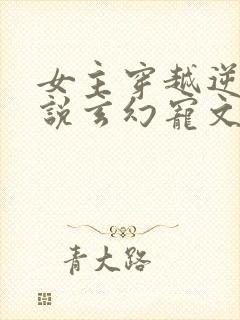 女主穿越逆
說玄幻寵文
青大路